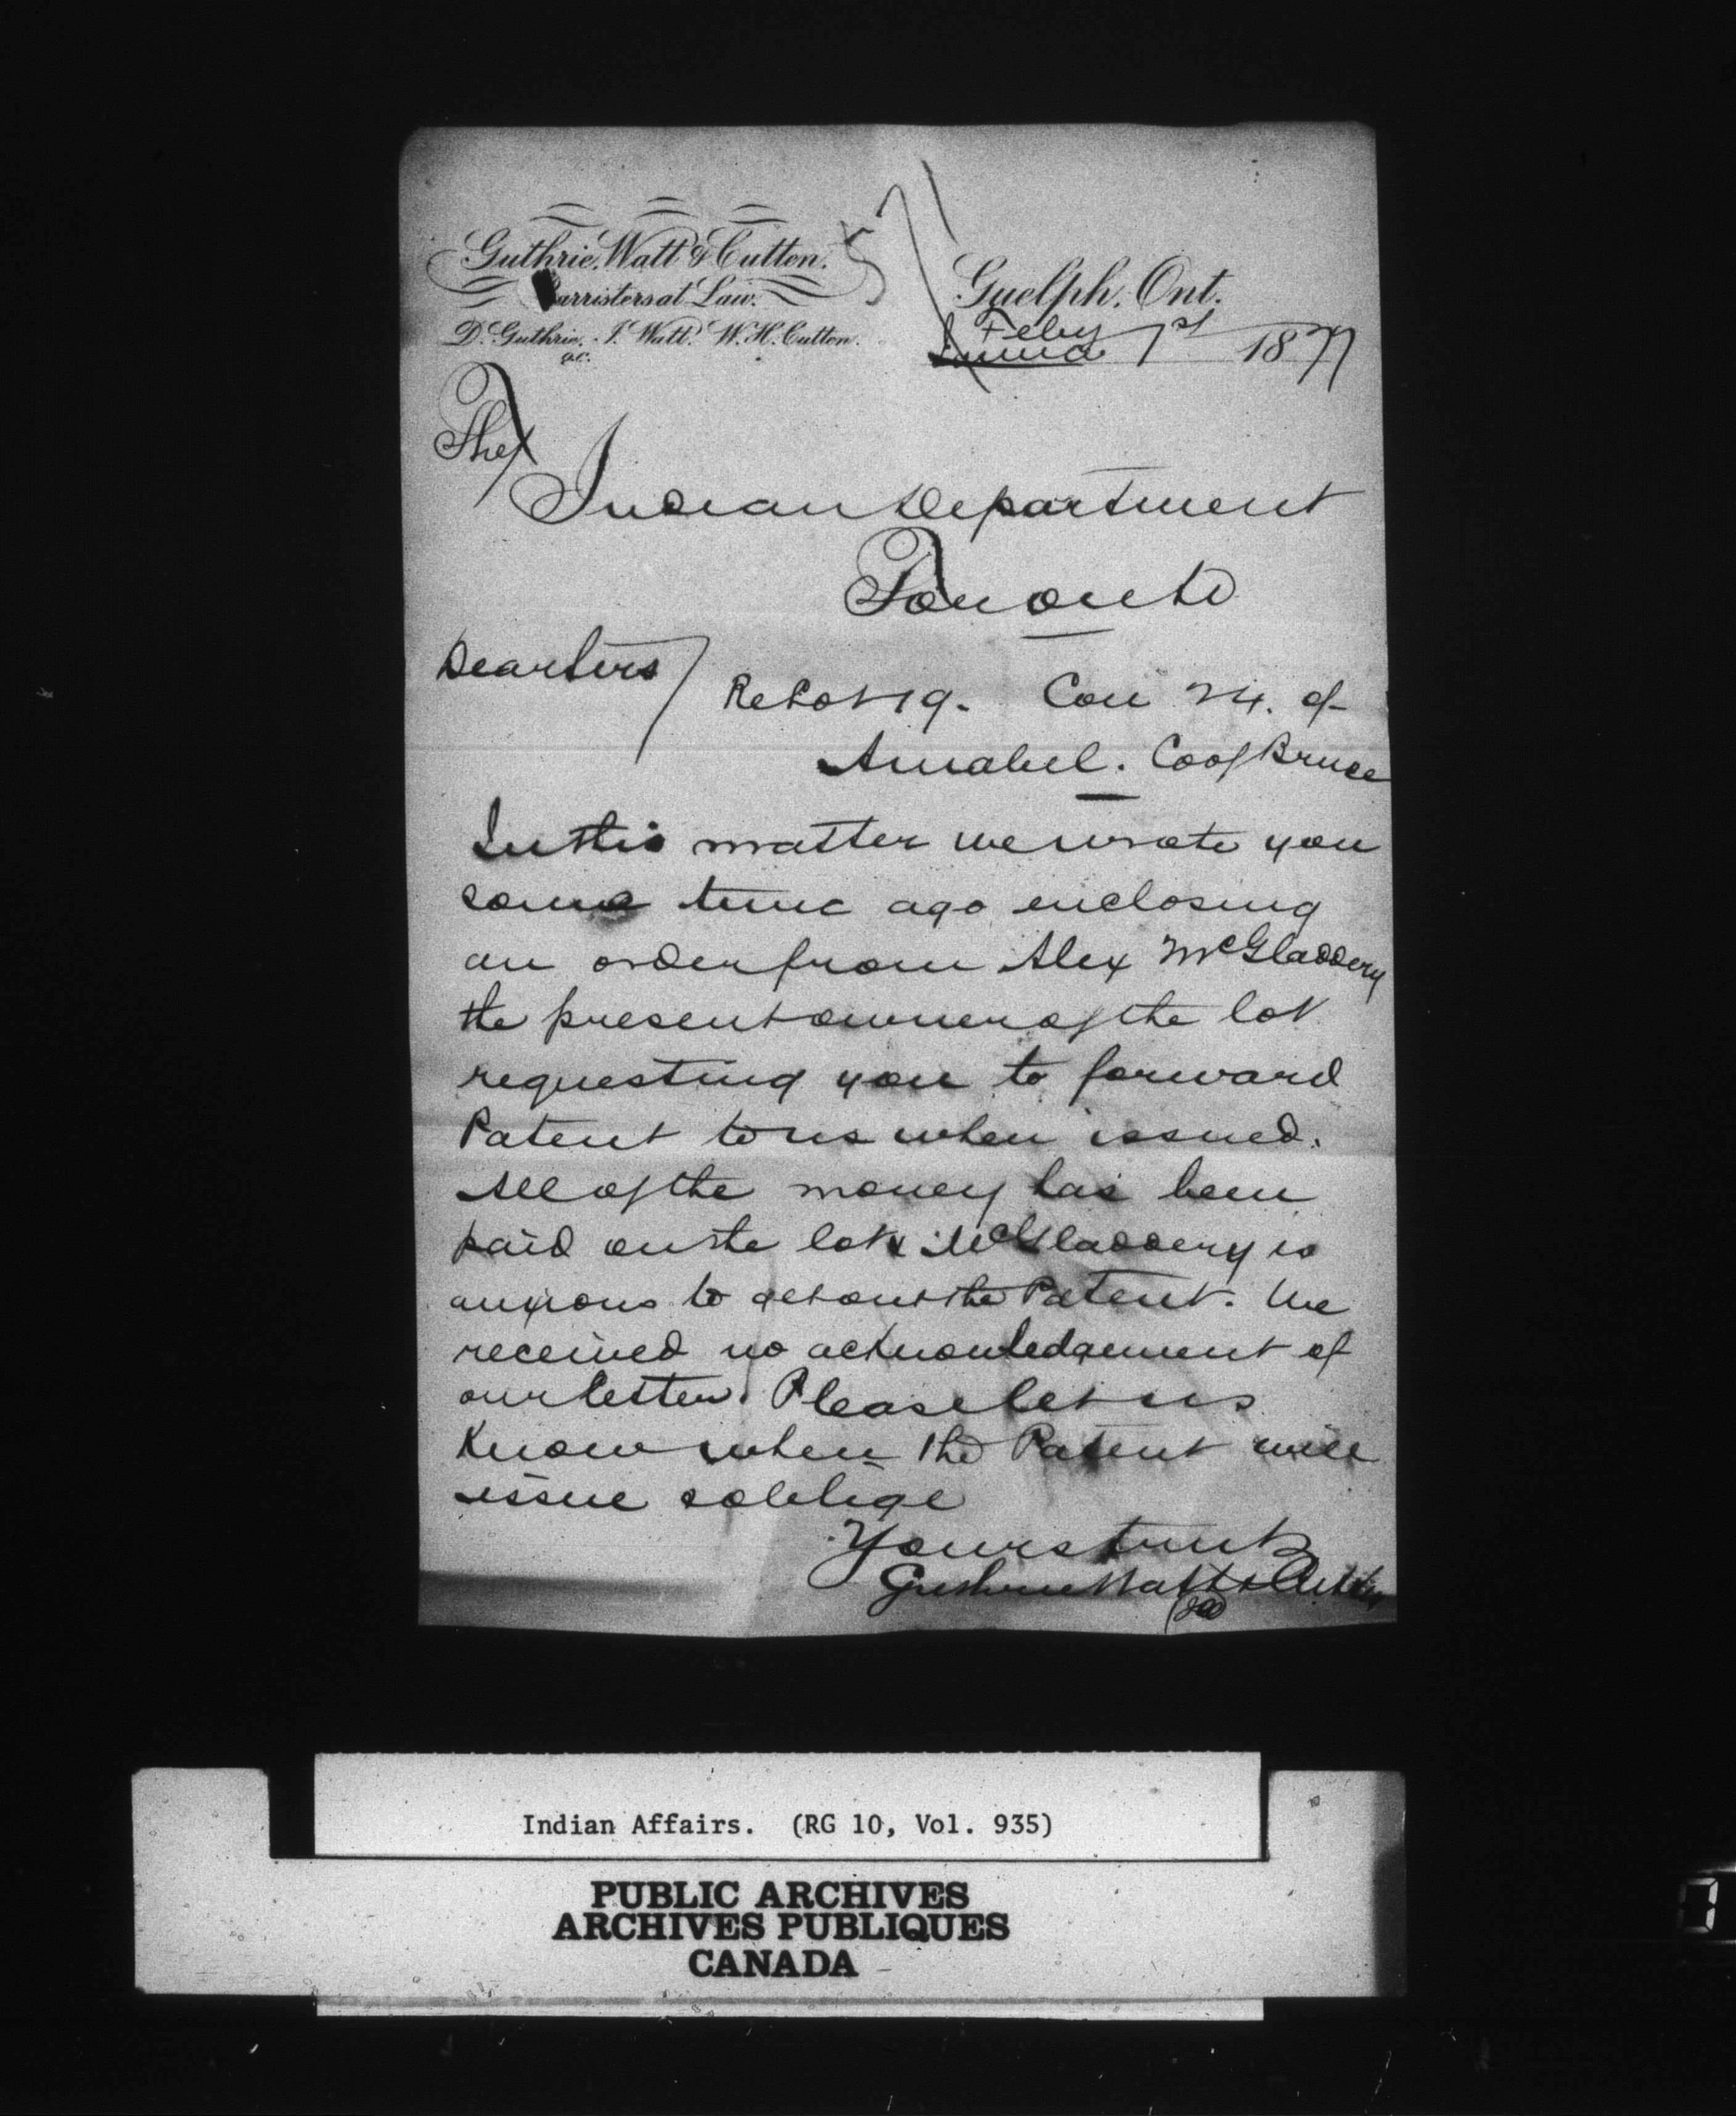 Guthrie, Watt & Cutten.
Barristers at Law.
D. Guthrie, J. Watt. W. H. Cutten.
Q.C.
Guelph, Ont.
Feby 1st 1877
The
Indian Department
Toronto
Dear Sirs
Re Lot 19. Con 24. of
Amabel. Co of Bruce
In this matter we wrote you
some time ago enclosing
an order from Alex McGladdery
the present owner of the lot
requesting you to forward
Patent to us when issued.
All of the money has been
paid on the lot & McGladdery is
anxious to get out the Patent. We
received no acknowledgement of
our letter. Please let us
know when the Patent will
issue & oblige
Yours truly
Guthrie Watt & Cutten
Indian Affairs. (RG 10, Vol. 935)
PUBLIC ARCHIVES
ARCHIVES PUBLIQUES
CANADA